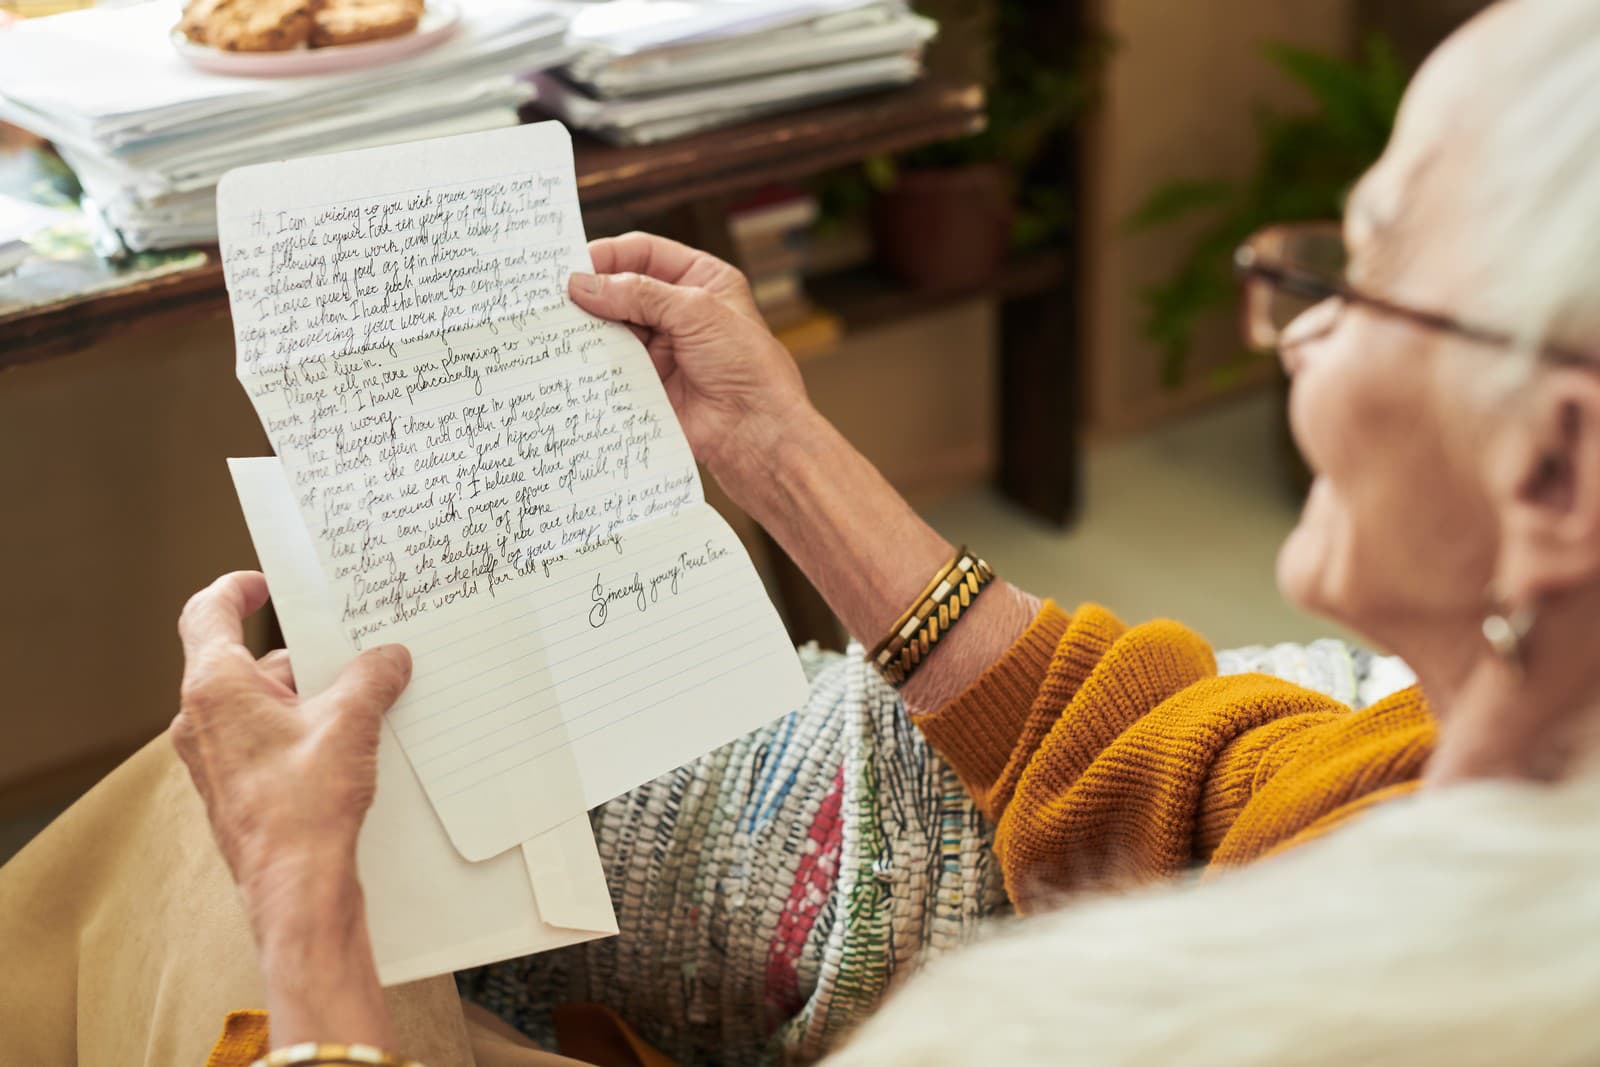 Hi, I am writing to you with great respect and hope
for a possible answer. For ten years of my life, I have
been following your work, and your ideas from books
are reflected in my soul as if in mirror.
I have never met such understanding and
city with whom I had the honor to communicate,
as discovering your work for myself. I
have towards understanding myself and
world we live in.
Please tell me, are you planning to write another
book soon? I have practically memorized all your
previous works.
The questions that you in your books make me
come back again and again to reflect on the place
of man in the culture and history of his time.
How often we can influence the appearance of the
reality around us? I believe that you and people
like you can, with proper effort of will, as if
reality out of
Because the reality is not out there, it's in our heads
And only with the help of your books you do change
your whole world for all your readers.
Sincerely yours, True Fan.